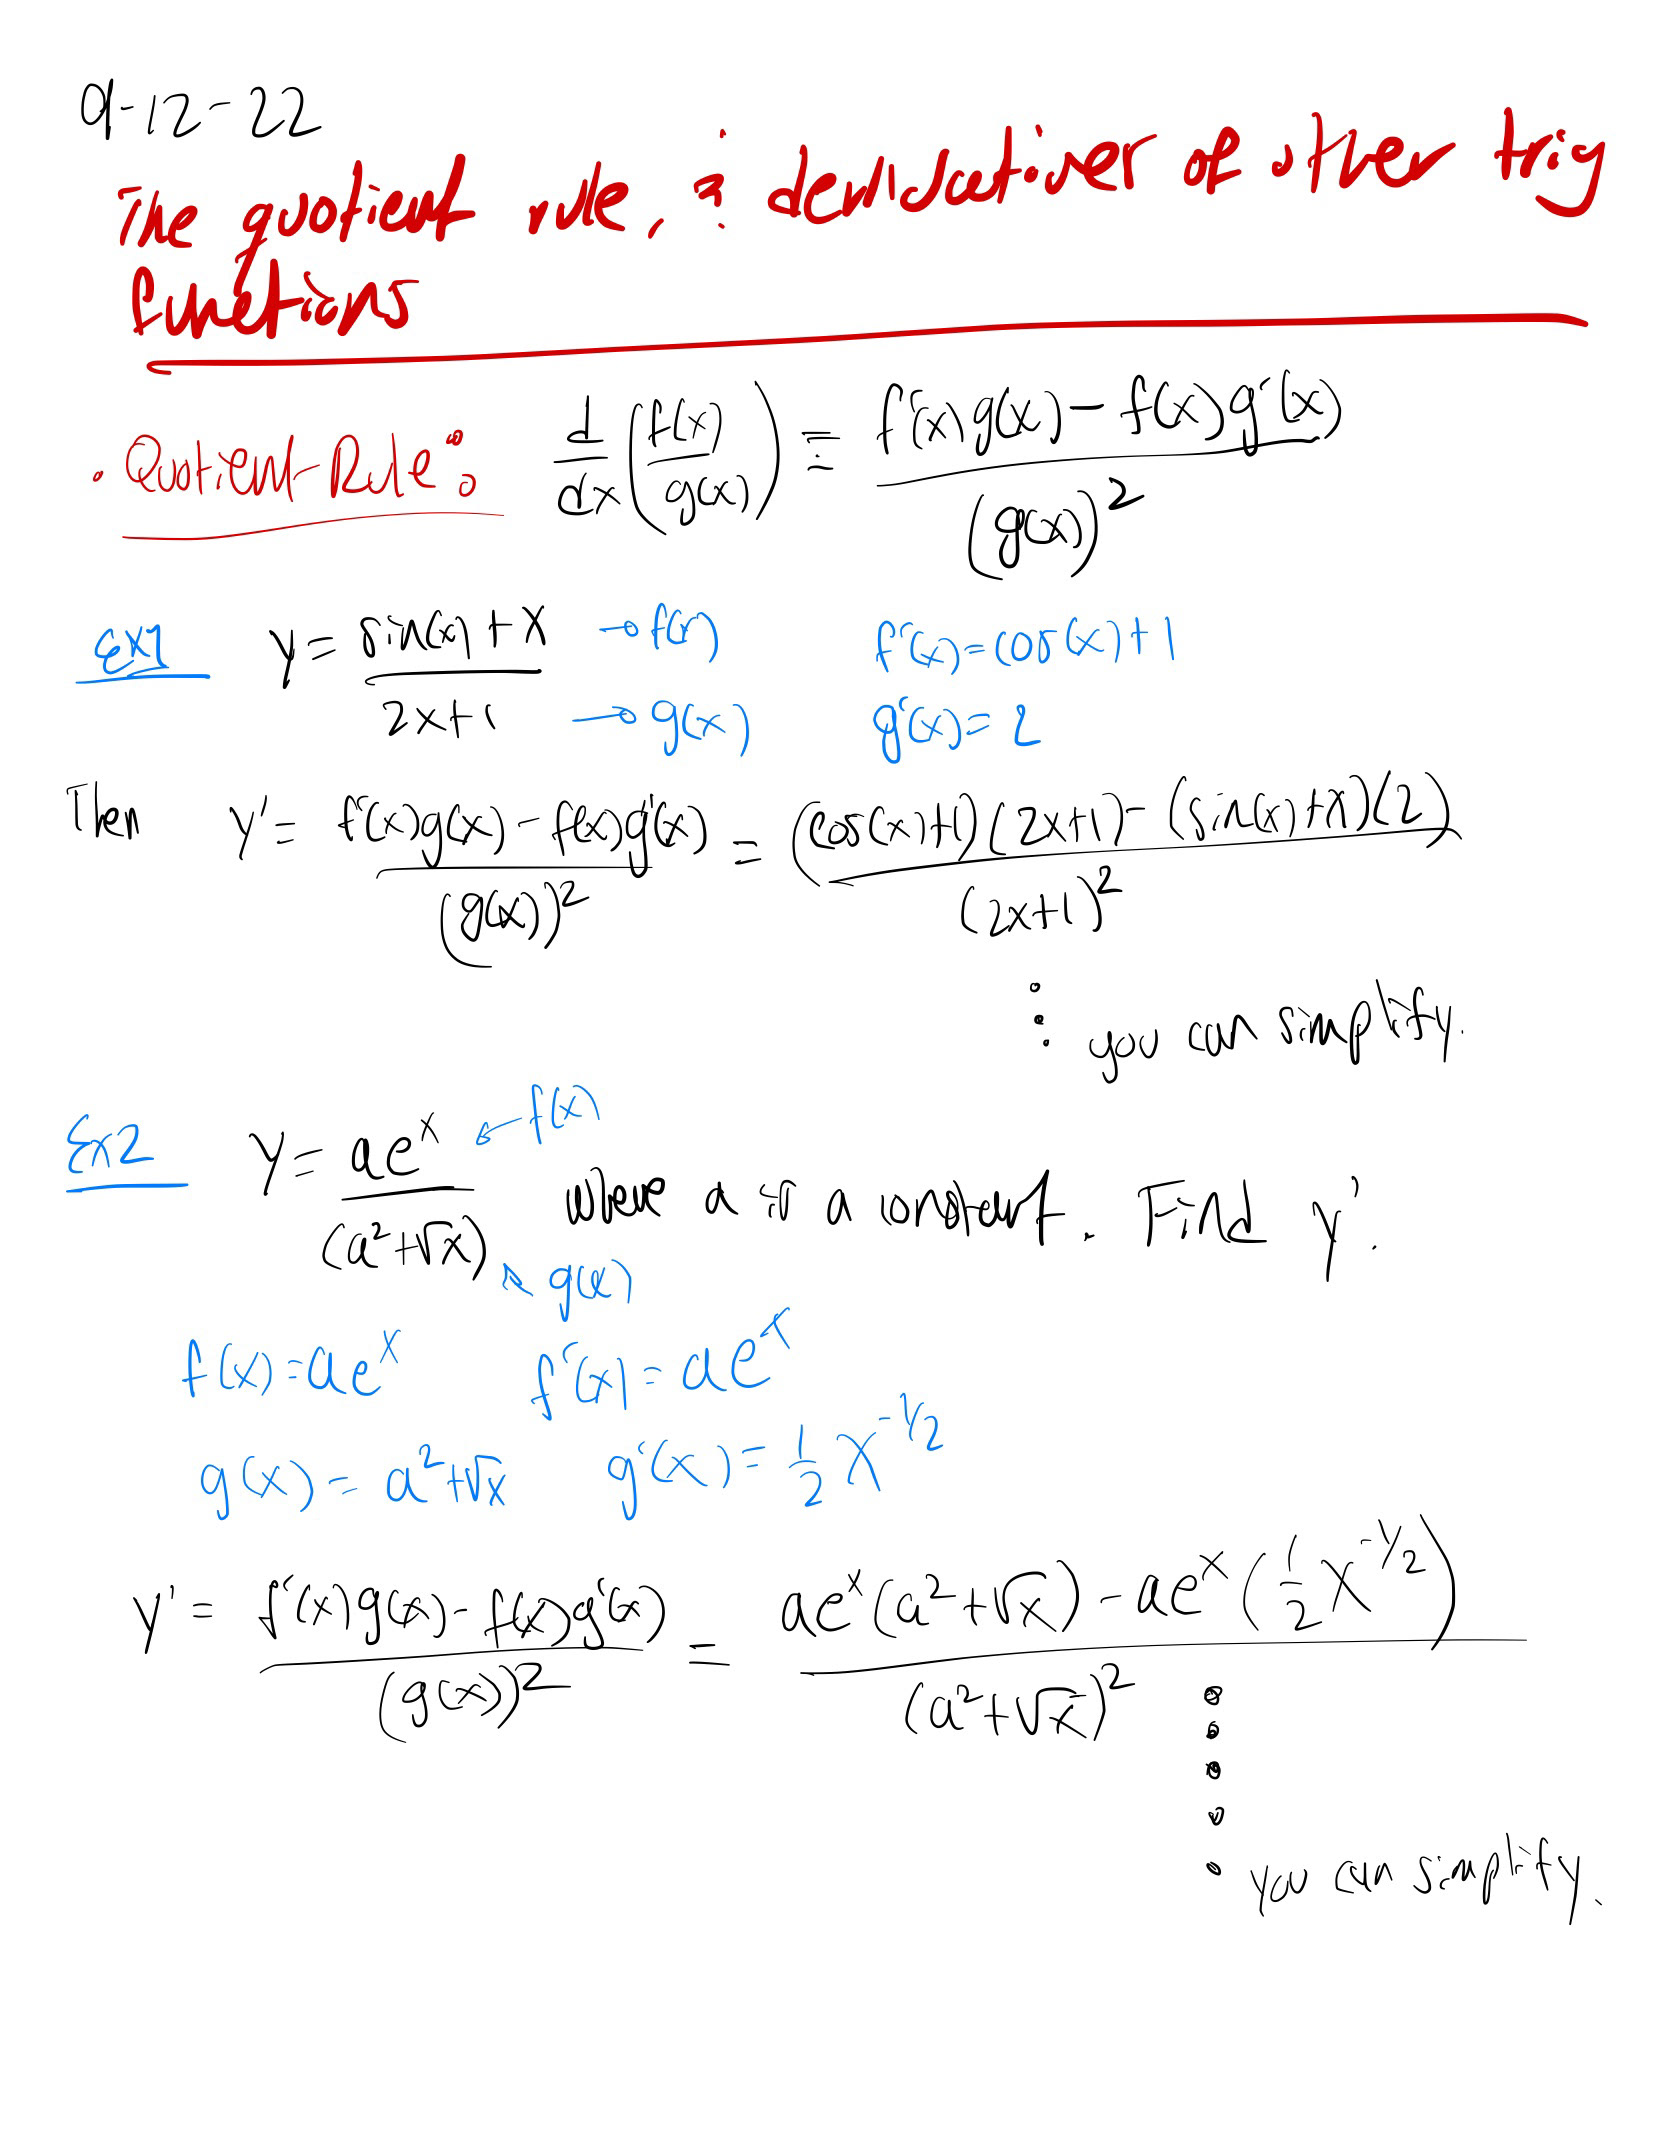 9-12-22
The quotient rule, & derivatives of other trig
functions
• Quotient Rule: d/dx (f(x)/g(x)) = (f'(x)g(x) - f(x)g'(x))/(g(x))²
Ex1 y = (sin(x) + x)/(2x+1) → f(x) → g(x) f'(x) = cos(x) + 1 g'(x) = 2
Then y' = (f'(x)g(x) - f(x)g'(x))/(g(x))² = ((cos(x)+1)(2x+1) - (sin(x)+x)(2))/(2x+1)²
⋮ you can simplify.
Ex2 y = ae^x/(a²+√x) ← f(x) ↖ g(x) where a is a constant. Find y'.
f(x) = ae^x f'(x) = ae^x
g(x) = a²+√x g'(x) = 1/2 x^(-1/2)
y' = (f'(x)g(x) - f(x)g'(x))/(g(x))² = (ae^x(a²+√x) - ae^x(1/2 x^(-1/2)))/(a²+√x)²
⋮ you can simplify.